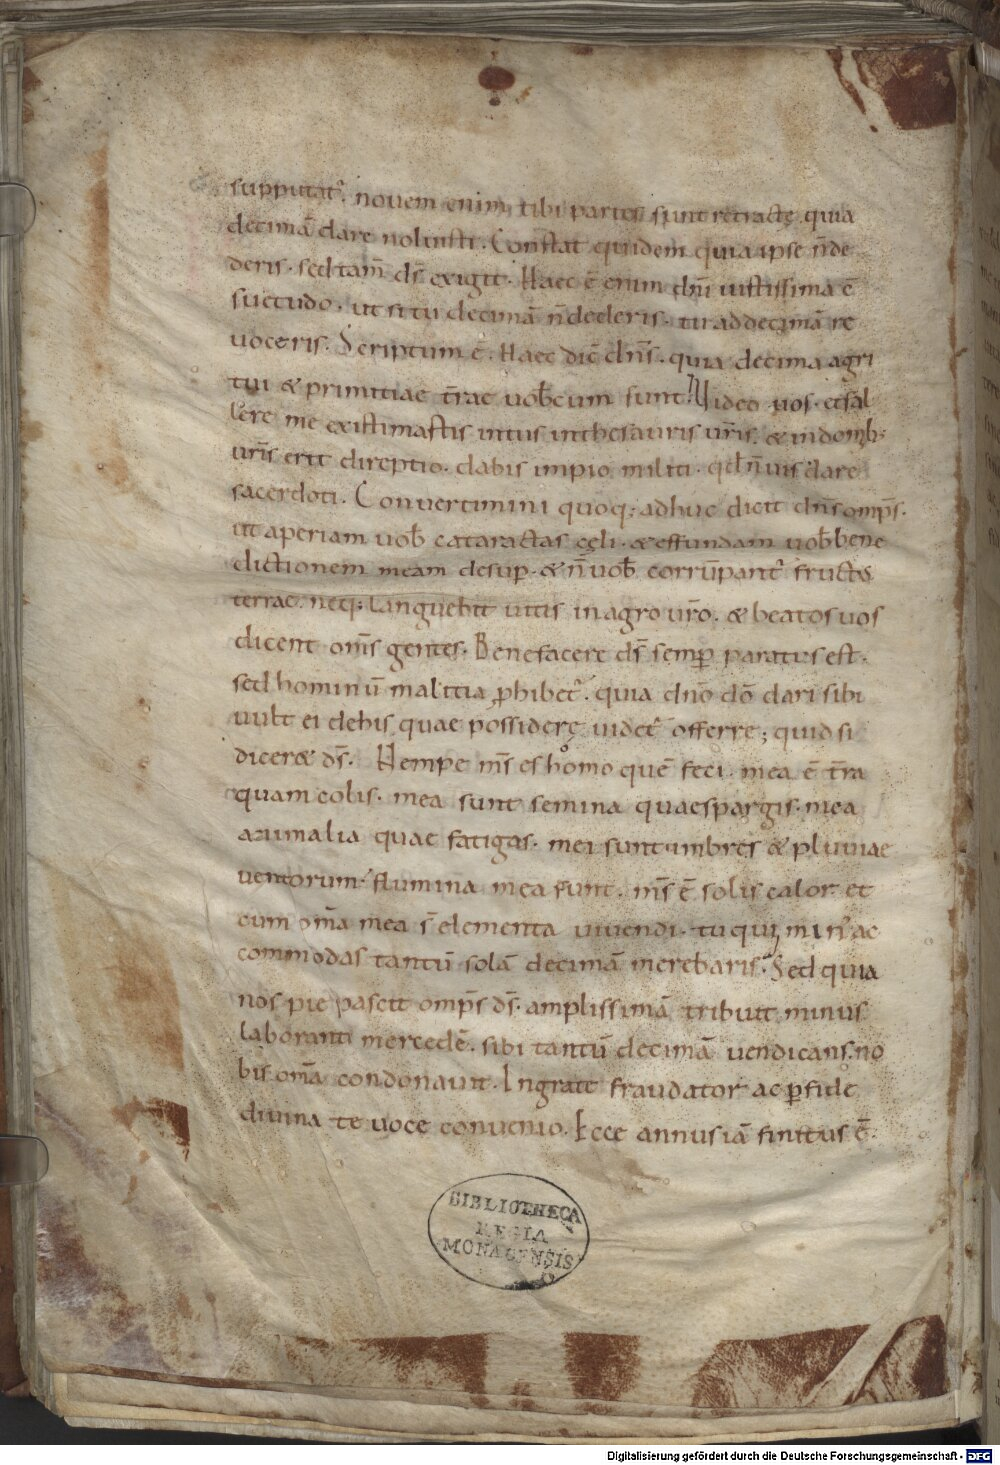 supputat̉. novem enim tibi partes sunt retractę quia
decimā dare noluisti. Constat quidem quia ipse n̄ de
deris. sed tam̄ ds̄ exigit. Haec ē enim dn̄i iustissima c̄
suetudo. ut si tu decimā n̄ dederis. tu ad decimā re
voceris. Scriptum ē. Haec dic̄ dn̄s. quia decima agri
tui & primitiae t̄rae vob̄cum sunt. Video vos. et fal
lere me existimastis intus in thesauris vr̄is. & in domib;
vr̄is erit direptio. dabis impio militi. qd̄ n̄ vis dare
sacerdoti. Convertimini quoq; adhuc dicit dn̄s omp̄s.
ut aperiam vob̄ cataractas cęli. & effundam vob̄ bene
dictionem meam desup̄. & n̄ vob̄ corrūpant̉ fructꝰ
terrae. neq; languebit vitis in agro vr̄o. & beatos vos
dicent om̄s gentes. Benefacere ds̄ semp̄ paratus est.
sed hominū malitia ꝓhibet̉. quia dn̄o dō dari sibi
vult ei de his quae possidere videt̉ offerre; quid si
diceret ds̄. Nempe m̄s es homo quē feci. mea ē t̄ra
quam colis. mea sunt semina quae spargis. mea
animalia quae fatigas. mei sunt imbres & pluviae
ventorum. flumina mea sunt. m̄s ē solis calor et
cum om̄a mea s̄ elementa vivendi. tu qui min̉ ac
commodas tantū solā decimā merebaris. Sed quia
nos pie pascit omp̄s ds̄. amplissimā tribuit minus
laboranti mercedē. sibi tantū decimā vendicans. no
bis om̄a condonavit. Ingrate fraudator ac ꝑfide
divina te voce convenio. Ecce annus iā finitus ē.
BIBLIOTHECA
REGIA
MONACENSIS
Digitalisierung gefördert durch die Deutsche Forschungsgemeinschaft - DFG